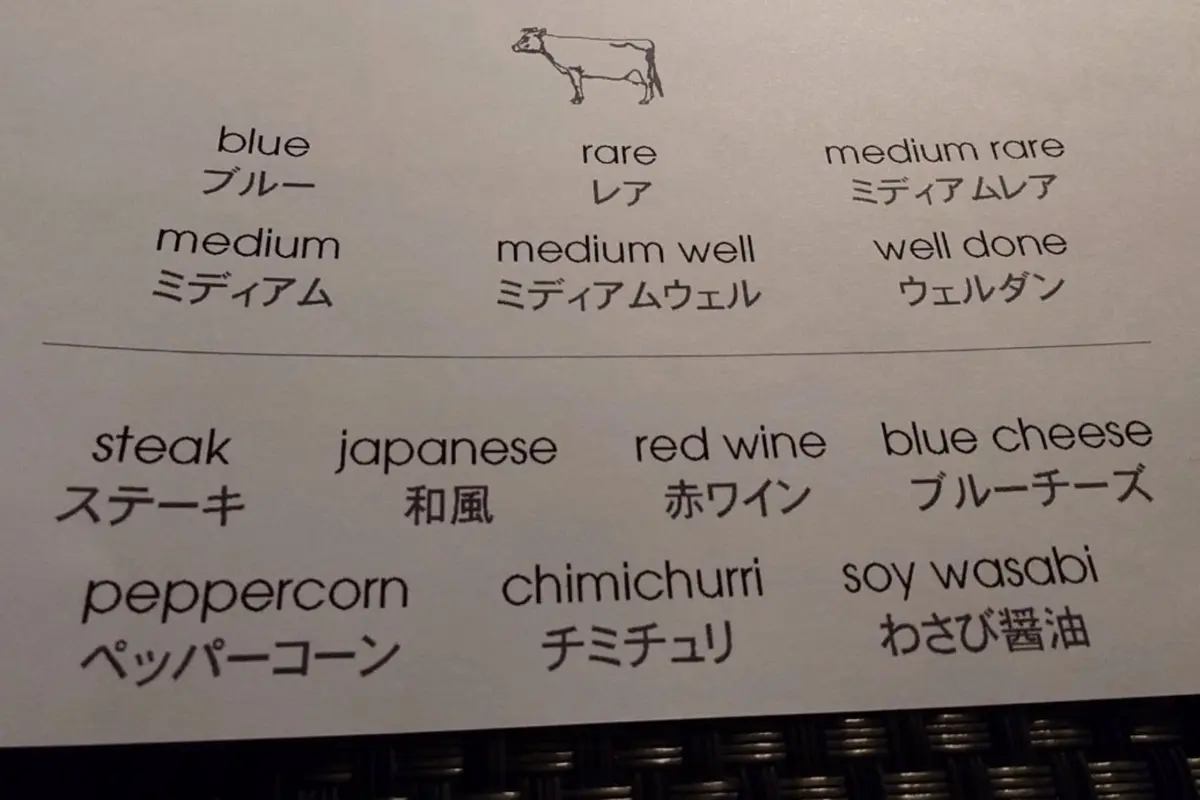 blue rare medium rare
ブルー レア ミディアムレア
medium medium well well done
ミディアム ミディアムウェル ウェルダン
steak japanese red wine blue cheese
ステーキ 和風 赤ワイン ブルーチーズ
peppercorn chimichurri soy wasabi
ペッパーコーン チミチュリ わさび醤油